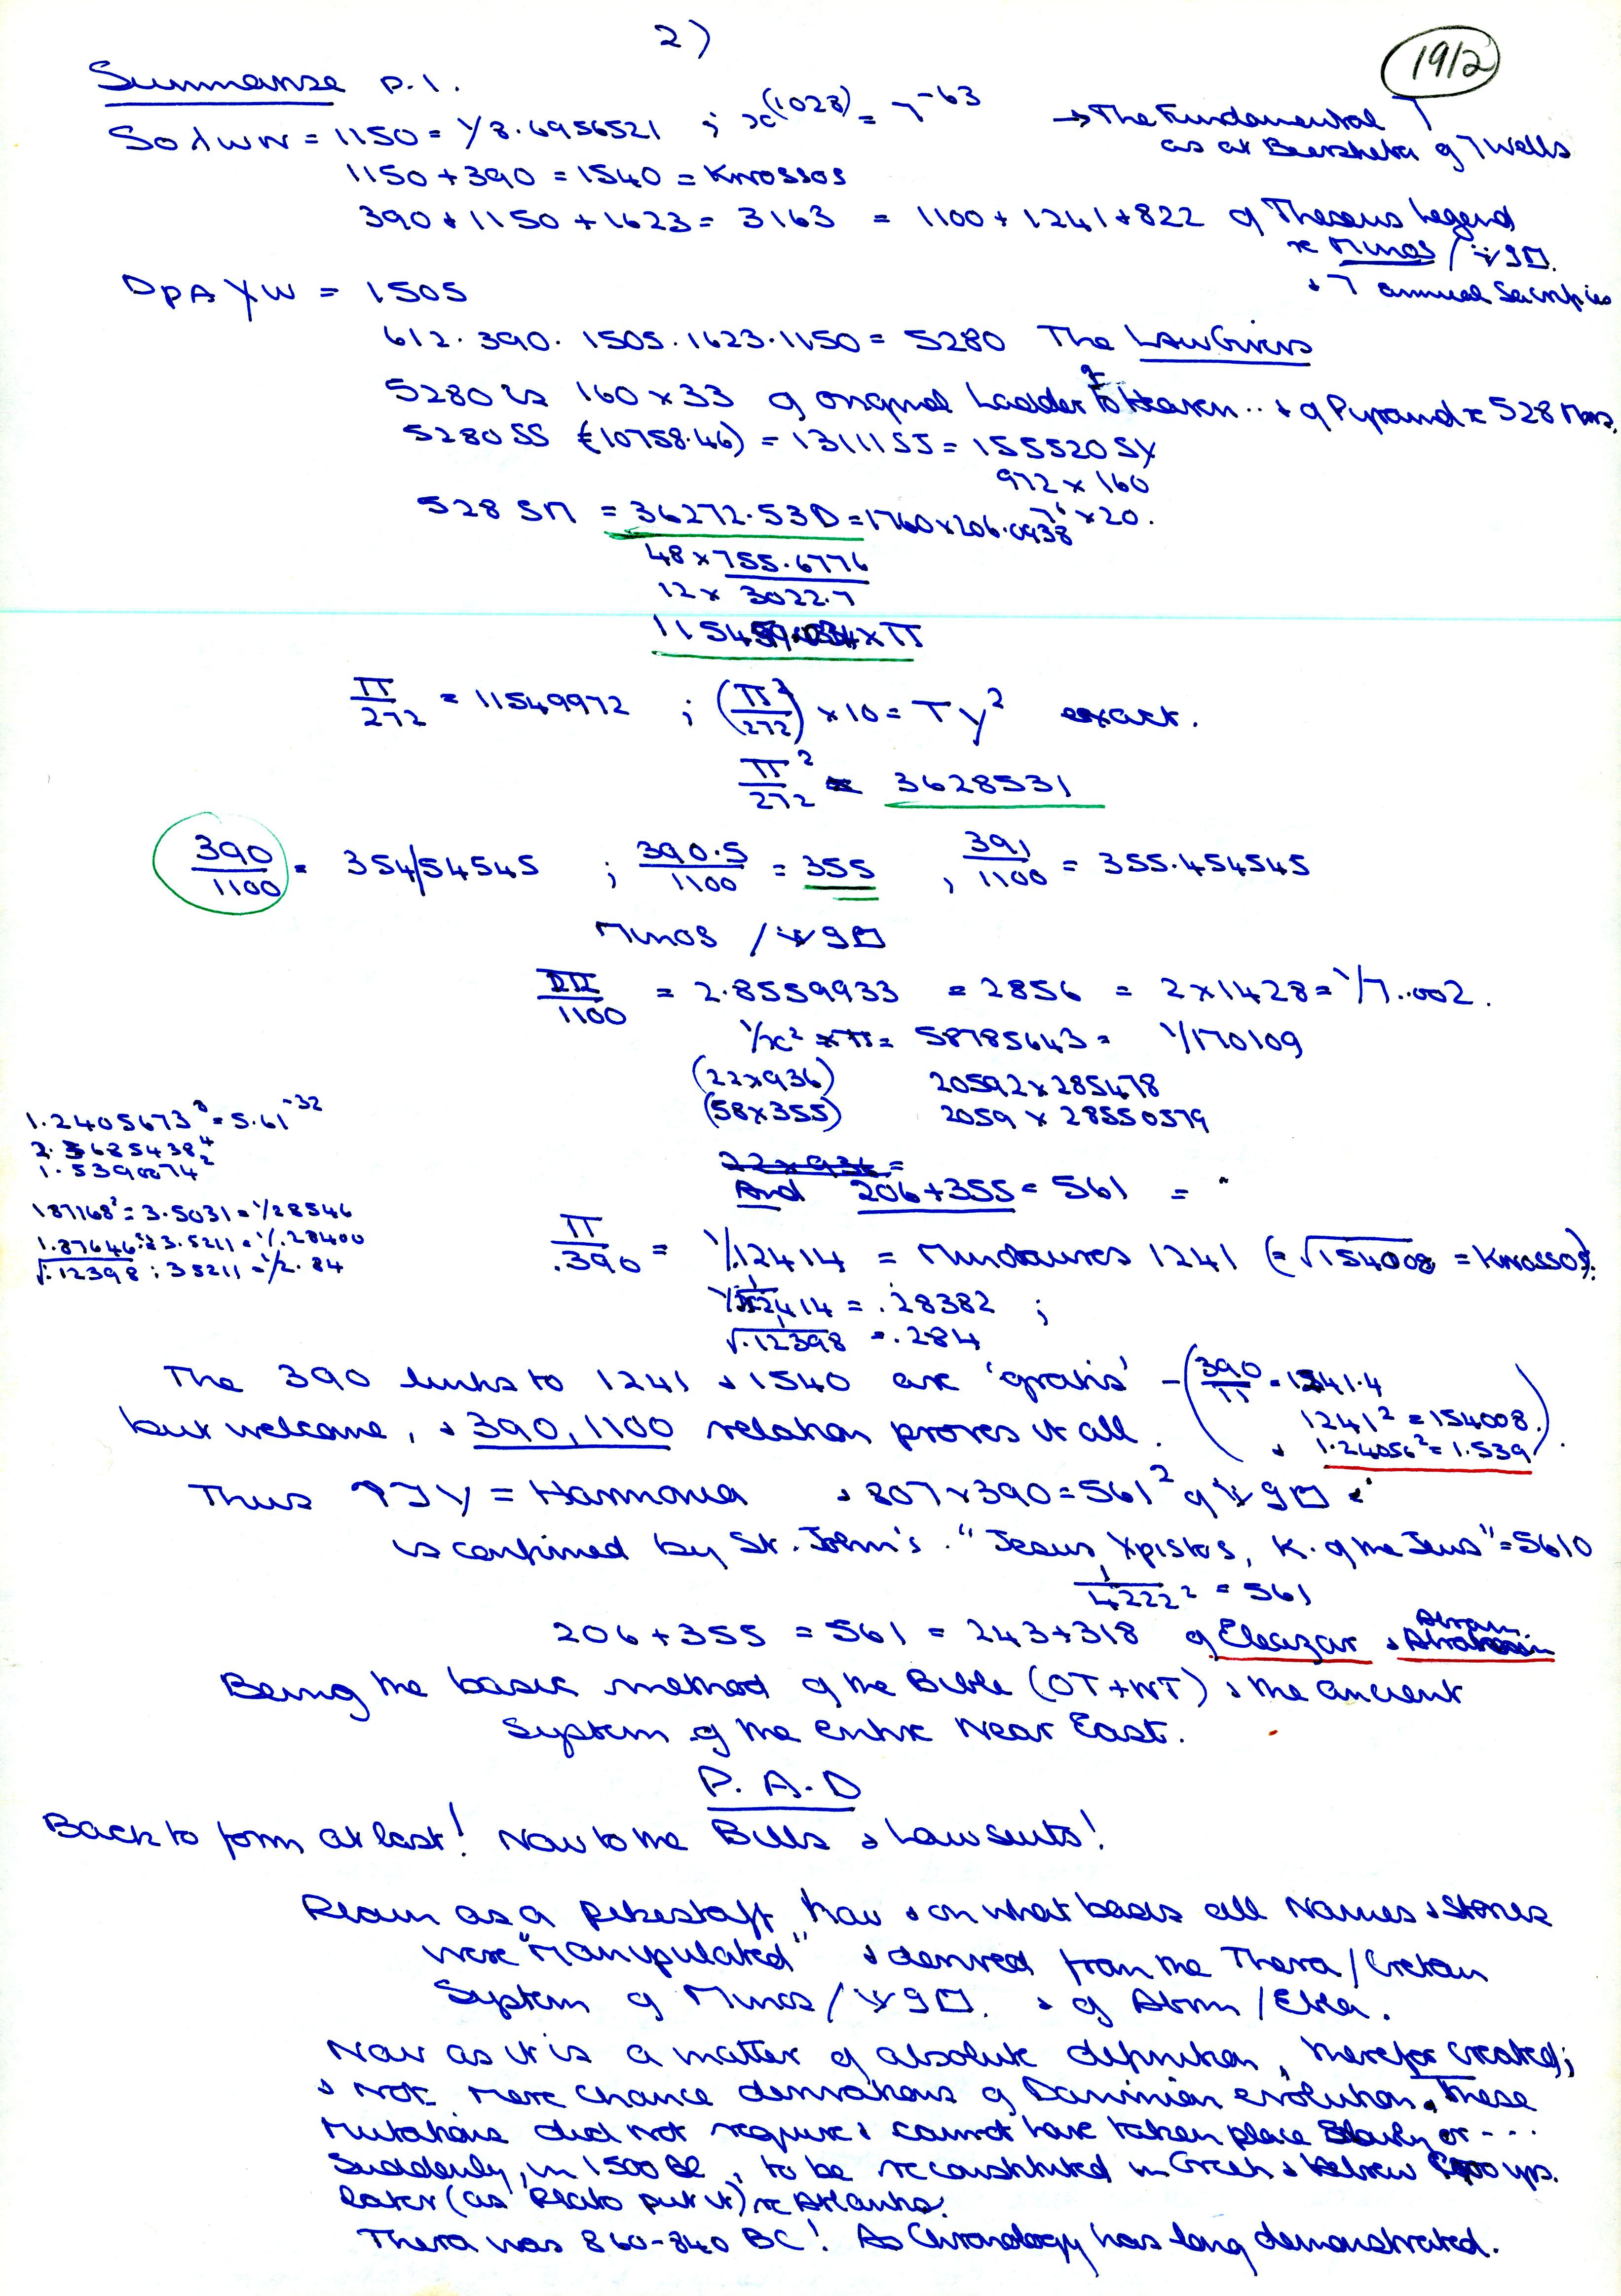 2)
1912
Summarise p.1.
Soλων = 1150 = 1/8.6956521 ; x^(1028) = 7^-63 → The Fundamental 7
as at Beersheba of 7 wells
1150 + 390 = 1540 = Knossos
390 + 1150 + 1623 = 3163 = 1100 + 1241 + 822 of Theseus Legend
re Minos /
+ 7 annual Sacrifices
= 1505
612. 390. 1505. 1623. 1150 = 5280 The LawGivers
5280 is 160 x 33 of original Ladder to Heaven .. + of Pyramid re 528
5280 SS (10758.46) = 13111 SS = 155520 SY
972 x 160
528 = 36272.53 D = 1760 x 206.0938
x 20.
48 x 755.6776
12 x 3022.7
x π
π/272 = 11549972 ; (π/272)² x 10 = T y² exact.
π²/272 = 3628531
390/1100 = 354/54545 ; 390.5/1100 = 355 , 391/1100 = 355.454545
Minos /
/1100 = 2.8559933 = 2856 = 2 x 1428 = 1/7..002.
1/x² x π = 58785643 = 1/170109
(22 x 936) 20592 x 285478
(58 x 355) 2059 x 28550579
1.2405673⁸ = 5.61^-32
2.3685438⁴
1.5390074²
187168² = 3.5031 = 1/28546
1.87646² = 3.5211 = 1/.28400
√.12398 ; 35211 = 1/2.84
22 x 936 =
And 206 + 355 = 561 =
π/.390 = 1/.12414 = Minotaures 1241 (= √154008 = Knossos).
= .28382 ;
√.12398 = .284
The 390 links to 1241 + 1540 are 'gratis' - (390/π = 1241.4
1241² = 154008.
but welcome, + 390, 1100 relation proves it all.
+ 1.24056² = 1.539).
Thus = Harmonia + 807 x 390 = 561² of
is confirmed by St. John's. "Jesus Χριstos, K. of the Jews" = 5610
1/4222² = 561
206 + 355 = 561 = 243 + 318 of Eleazar + Abram
Being the basic method of the Bible (OT + NT) + the ancient
System of the entire Near East.
P. A. D
Back to form at last! Now to the Bills + Law suits!
Plain as a pikestaff, how + on what basis all Names + Stories
were "Manipulated" + derived from the Thera / Cretan
System of Minos / + of Abm / Ebla.
Now as it is a matter of absolute definition, therefor created;
+ not mere chance derivations of Darwinian evolution, these
Mutations did not require + cannot have taken place slowly or ----
Suddenly, in 1500 BC, to be reconstituted in Greek + Hebrew yrs.
later (as Plato put it) re Atlantis.
Thera was 860-840 BC! As Chronology has long demonstrated.